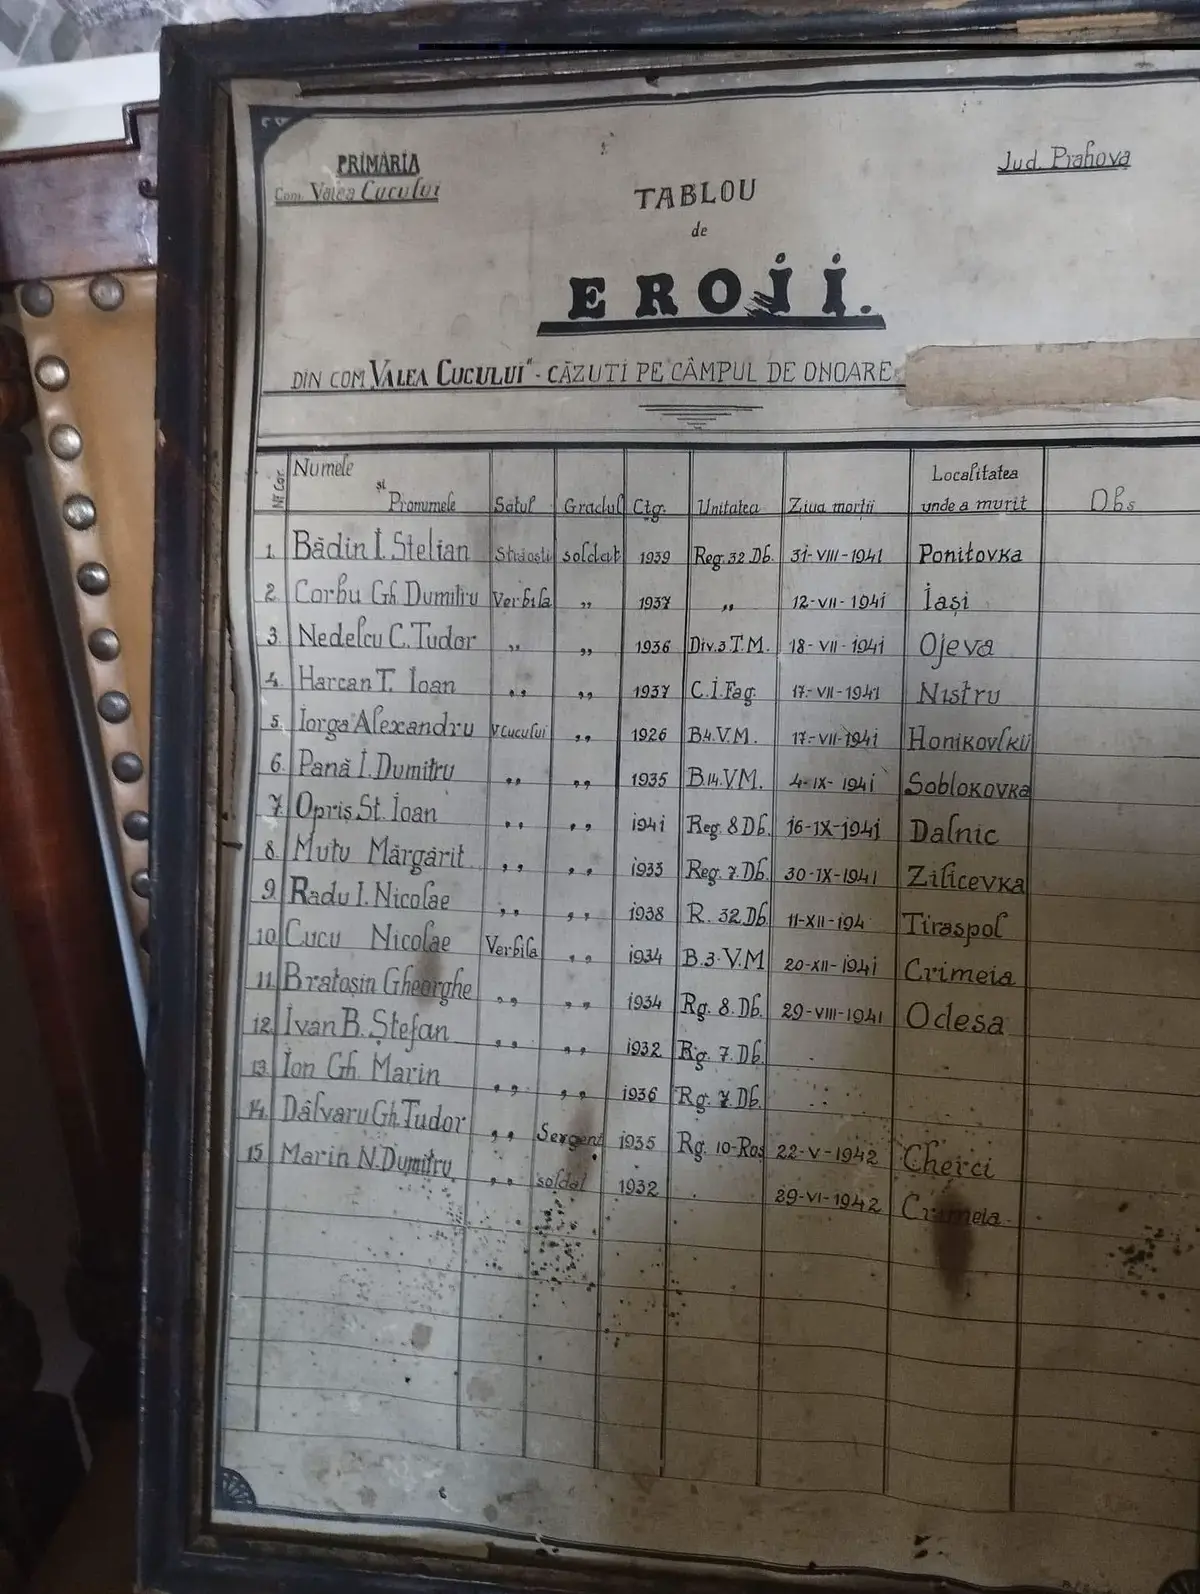 PRIMĂRIA
Com. Valea Cucului
Jud. Prahova
TABLOU
de
EROII.
DIN COM "VALEA CUCULUI" - CĂZUTI PE CÂMPUL DE ONOARE
Nr. Cor. Numele și Pronumele Satul Gradul Ctg. Unitatea Ziua morții Localitatea unde a murit Obs
1. Bădin I. Stelian soldat 1939 Reg. 32 Db. 31-VIII-1941 Ponitovka
2. Corbu Gh. Dumitru Verbila ,, 1937 ,, 12-VII-1941 Iași
3. Nedelcu C. Tudor ,, ,, 1936 Div. 3 T.M. 18-VII-1941 Ojeva
4. Harcan T. Ioan ,, ,, 1937 C.I.Fag. 17-VII-1941 Nistru
5. Iorga Alexandru V. Cucului ,, 1926 B.4.V.M. 17-VII-1941
6. Pană I. Dumitru ,, ,, 1935 B.14.V.M. 4-IX-1941 Soblokovka
7. Opriș St. Ioan ,, ,, 1941 Reg. 8 Db. 16-IX-1941 Dalnic
8. Mutu Mărgărit ,, ,, 1933 Reg. 7. Db. 30-IX-1941 Zilicevka
9. Radu I. Nicolae ,, ,, 1938 R. 32 Db. 11-XII-194 Tiraspol
10. Cucu Nicolae Verbila ,, 1934 B.3.V.M 20-XII-1941 Crimeia
11. Bratosin Gheorghe ,, ,, 1934 Rg. 8. Db. 29-VIII-1941 Odesa
12. Ivan B. Ștefan ,, ,, 1932 Rg. 7. Db.
13. Ion Gh. Marin ,, ,, 1936 Rg. 7. Db.
14. Dâlvaru Gh. Tudor ,, Sergent 1935 Rg. 10-Roș 22-V-1942 Cherci
15. Marin N. Dumitru ,, soldat 1932 29-VI-1942 Crimeia